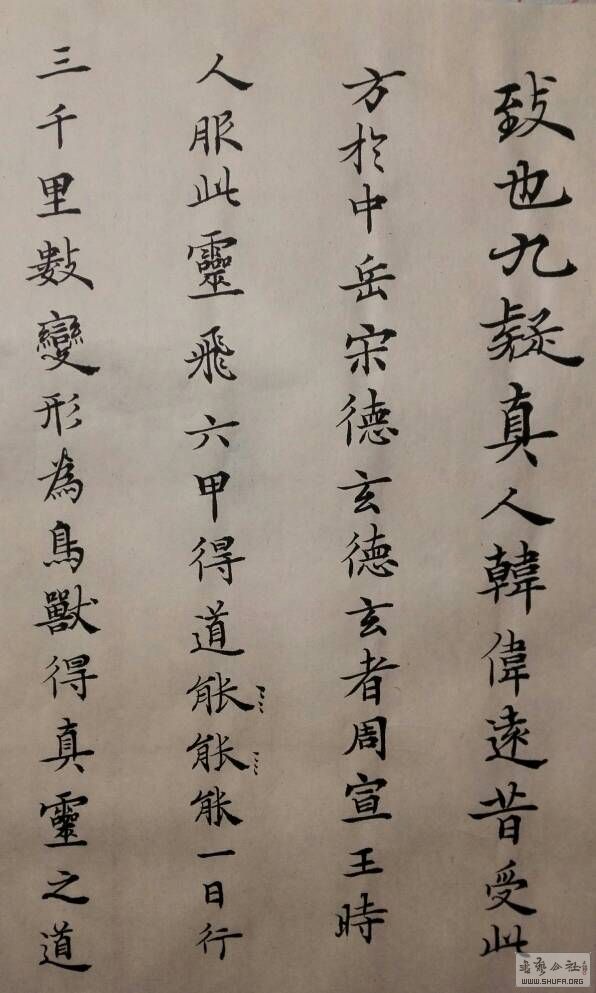 致也九疑真人韓偉遠昔受此
方於中岳宋德玄德玄者周宣王時
人服此靈飛六甲得道能能能一日行
三千里數變形為鳥獸得真靈之道
WWW.SHUFA.ORG